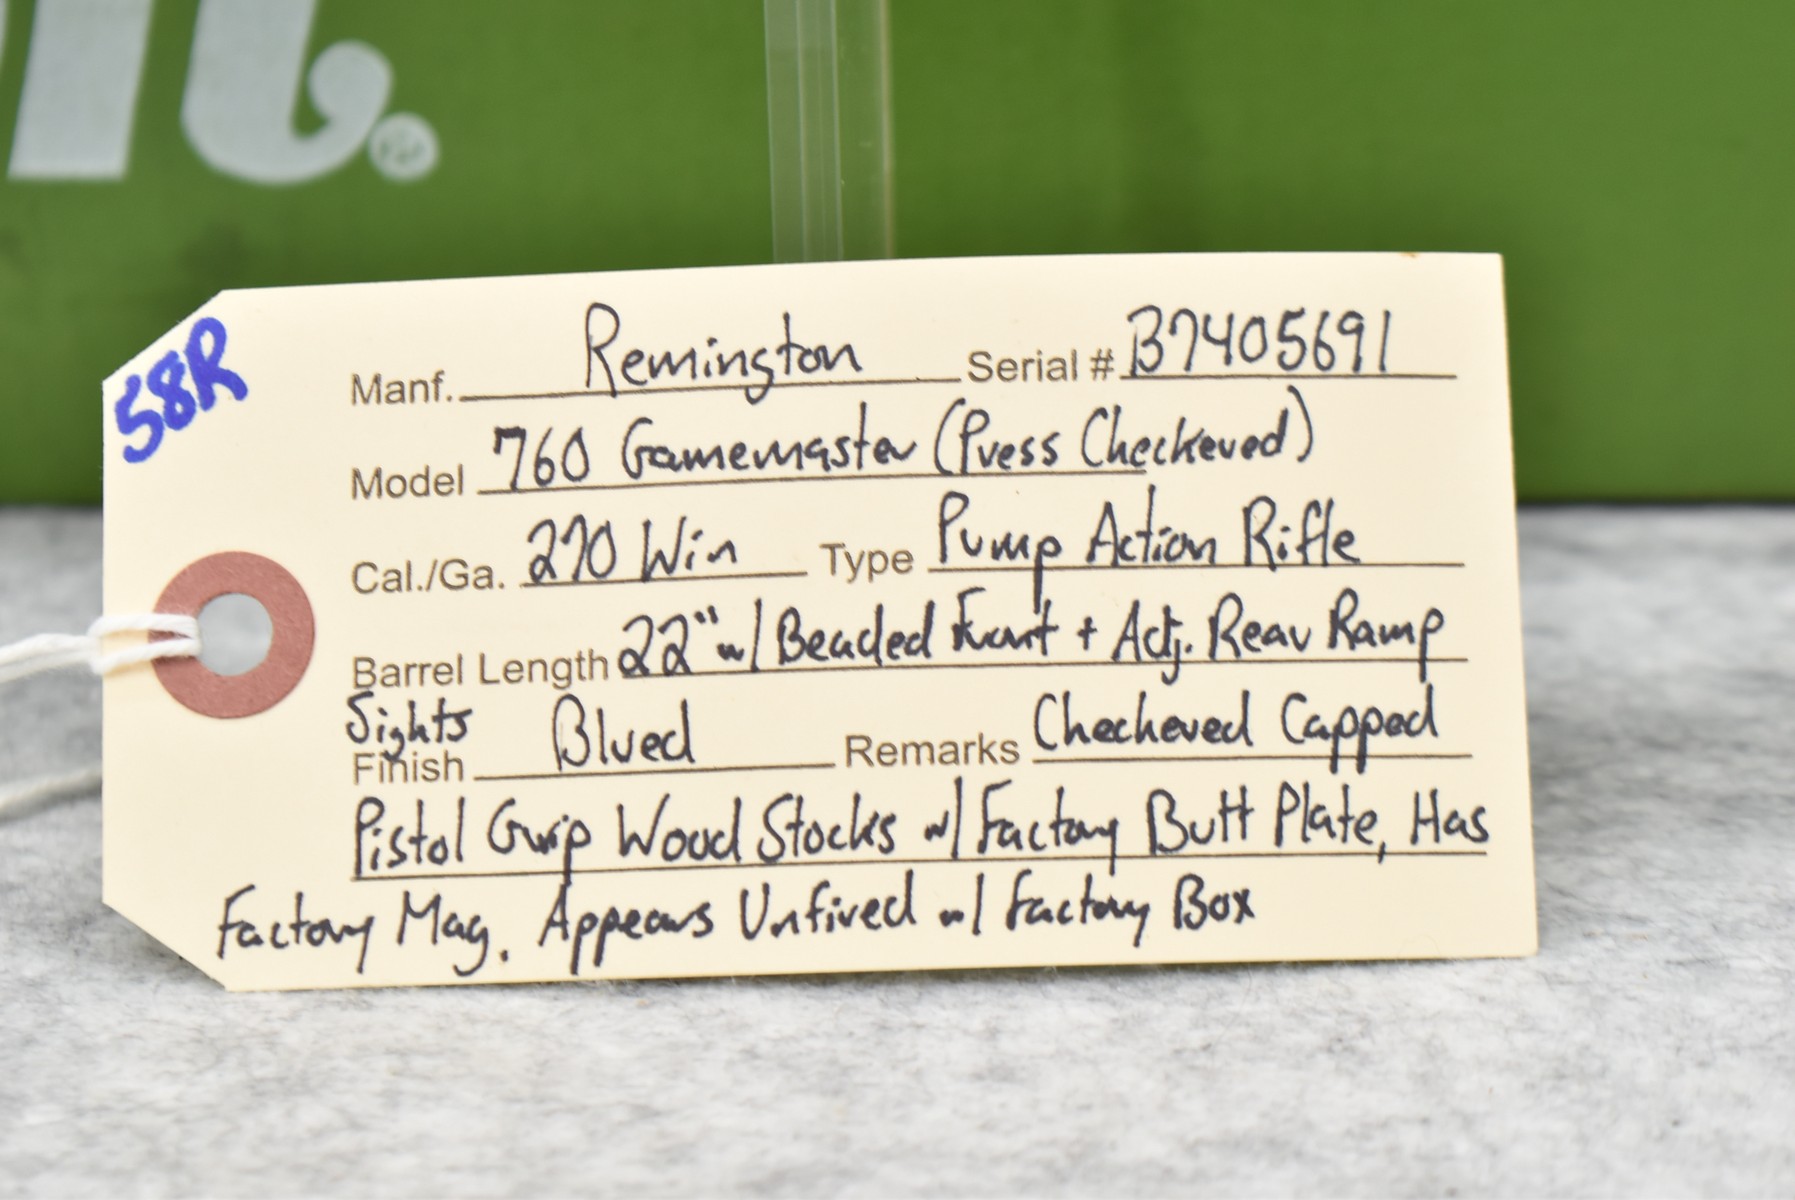 n.®
58R
Manf. Remington Serial # B7405691
Model 760 Gamemaster (Press Checkered)
Cal./Ga. 270 Win Type Pump Action Rifle
Barrel Length 22" w/ Beaded Front + Adj. Rear Ramp
Sights
Finish Blued Remarks Checkered Capped
Pistol Grip Wood Stocks w/ Factory Butt Plate, Has
Factory Mag. Appears Unfired w/ Factory Box